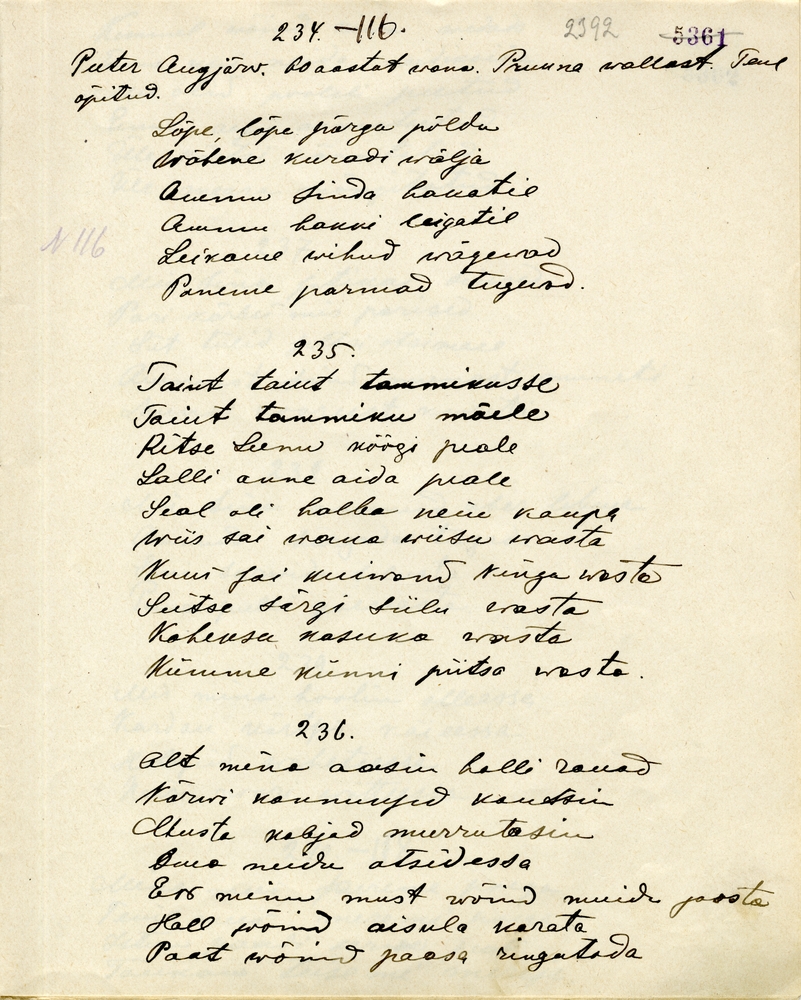 234. -116. 2392 5361
Peeter Augjärw. 60 aastat wana. Pruuna wallast. Teul
õpitud.
Lõpe, lõpe põrgu põldu
Wähene kuradi wälja
Ammu sinda hakatie
Ammu hakki leigatie
N 116
Leikame wihud wägewad
Paneme parmad tugewad.
235.
Taint taint tammikusse
Taint tammiku mäele
Ritse Leenu köögi peale
Lalli anne aida peale
Seal oli halba neiu kaupa
Wiis sai wana wiisu wasta
Kuus sai kuiwand kinga wasta
Seitse särgi siilu wasta
Kaheksa kasuka wasta
Kümme künni piitsa wasta.
236.
Alt mina aasin halli rauad
Kõrwi kannuksed kautsin
Musta kabjad murrutasin
Oma neidu otsidessa
Eos minu must wõind muidu joosta
Hall wõind aisula karata
Paat wõind paasa ringutada